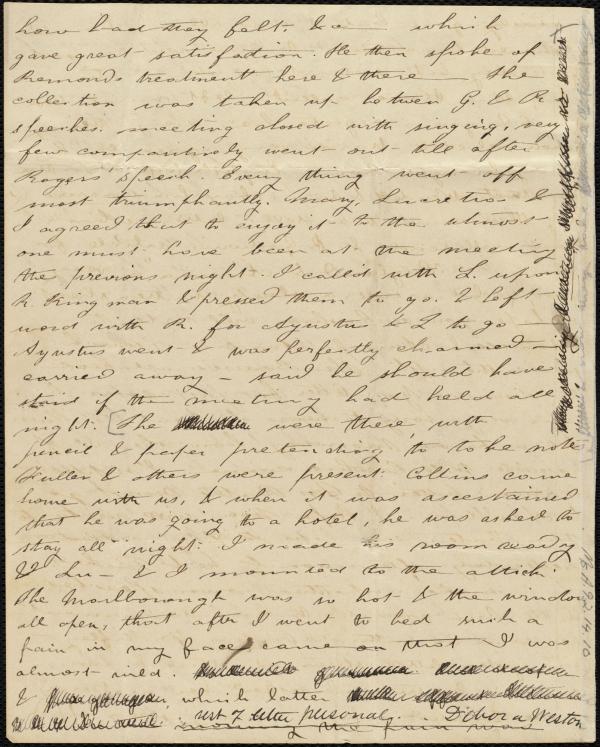 how bad they felt, &c which
gave great satisfaction. He then spoke of
Remonds treatment here & there — The
collection was taken up between G. & R
speeches. meeting closed with singing, very
few comparitively went out till after
Rogers' speech. Every thing went off
most triumphantly. Mary, Lucretia &
I agreed that to enjoy it to the utmost
one must have been at the meeting
the previous night. I called with L. upon
R. Kingman & pressed them to go. & left
word with R. for Agustus & L to go —
Agustus went & was perfectly charmed —
carried away — said he should have
staid if the meeting had held all
night. [The were there with
pencil & paper pretending to to be note
Fuller & others were present. Collins came
home with us, & when it was ascertained
that he was going to a hotel, he was asked to
stay all night. I made his room ready
& Lu — & I mounted to the attick.
The Marlborough was so hot & the window
all open, that after I went to bed such a
pain in my face came on that I was
almost wild.
& which latter
rest of letter personal. Debora Weston
morning the pain was